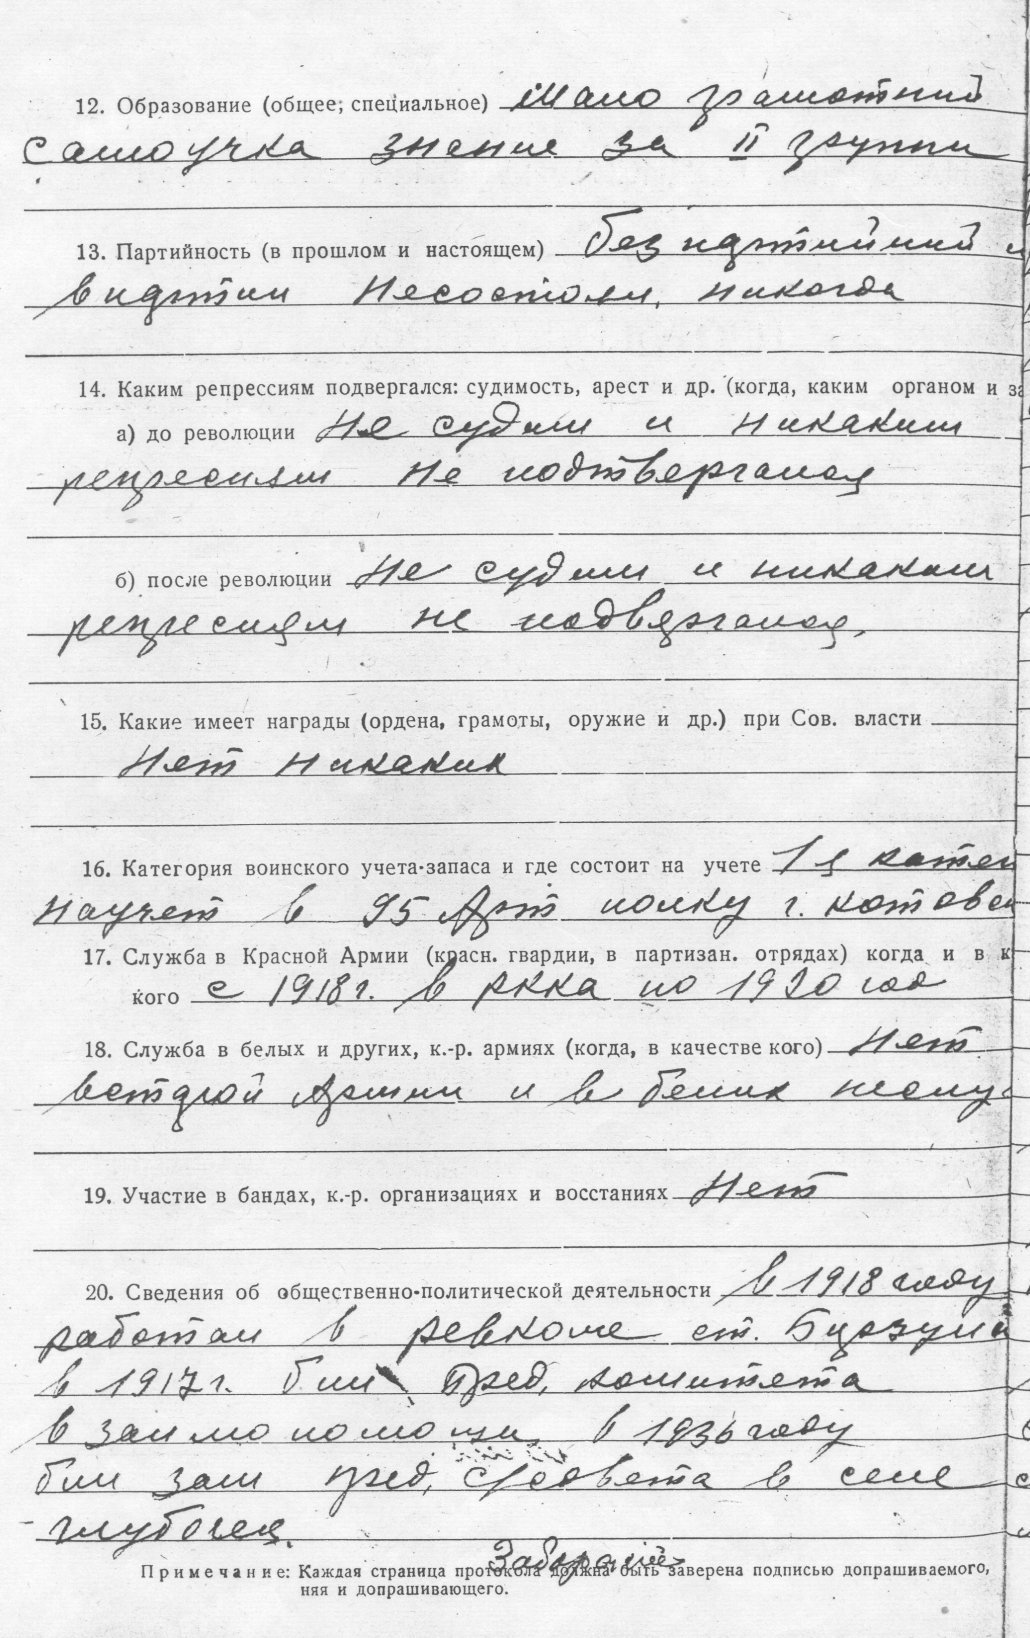 12. Образование (общее; специальное) Мало грамотний
самоучка знение за II группи
13. Партийность (в прошлом и настоящем) без партийний и
в партии Несостоял, никогда
14. Каким репрессиям подвергался: судимость, арест и др. (когда, каким органом и за
а) до революции Не судим и никаким
репресиям не подтвергался
б) после революции Не судим и никаким
репресиям не подвергался,
15. Какие имеет награды (ордена, грамоты, оружие и др.) при Сов. власти
Нет никаких
16. Категория воинского учета-запаса и где состоит на учете 1я катег
Научет в 95 Арт полку г. котовск
17. Служба в Красной Армии (красн. гвардии, в партизан. отрядах) когда и в к
кого с 1918г. в РККА по 1920 год
18. Служба в белых и других, к.-р. армиях (когда, в качестве кого) Нет
встарой Армии и в белих неслу
19. Участие в бандах, к.-р. организациях и восстаниях Нет
20. Сведения об общественно-политической деятельности в 1918 году
работал в ревкоме ст. Бирзула
в 1917г. бил Пред. комитета
взаимопомощи, в 1936 году
бил зам пред, с/совета в селе
глубочек.
Примечание: Каждая страница протокола должна быть заверена подписью допрашиваемого,
няя и допрашивающего.